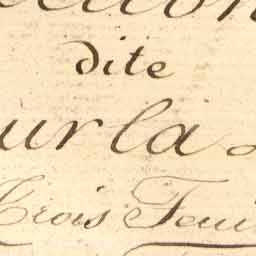 dite
sur la
Trois Feui